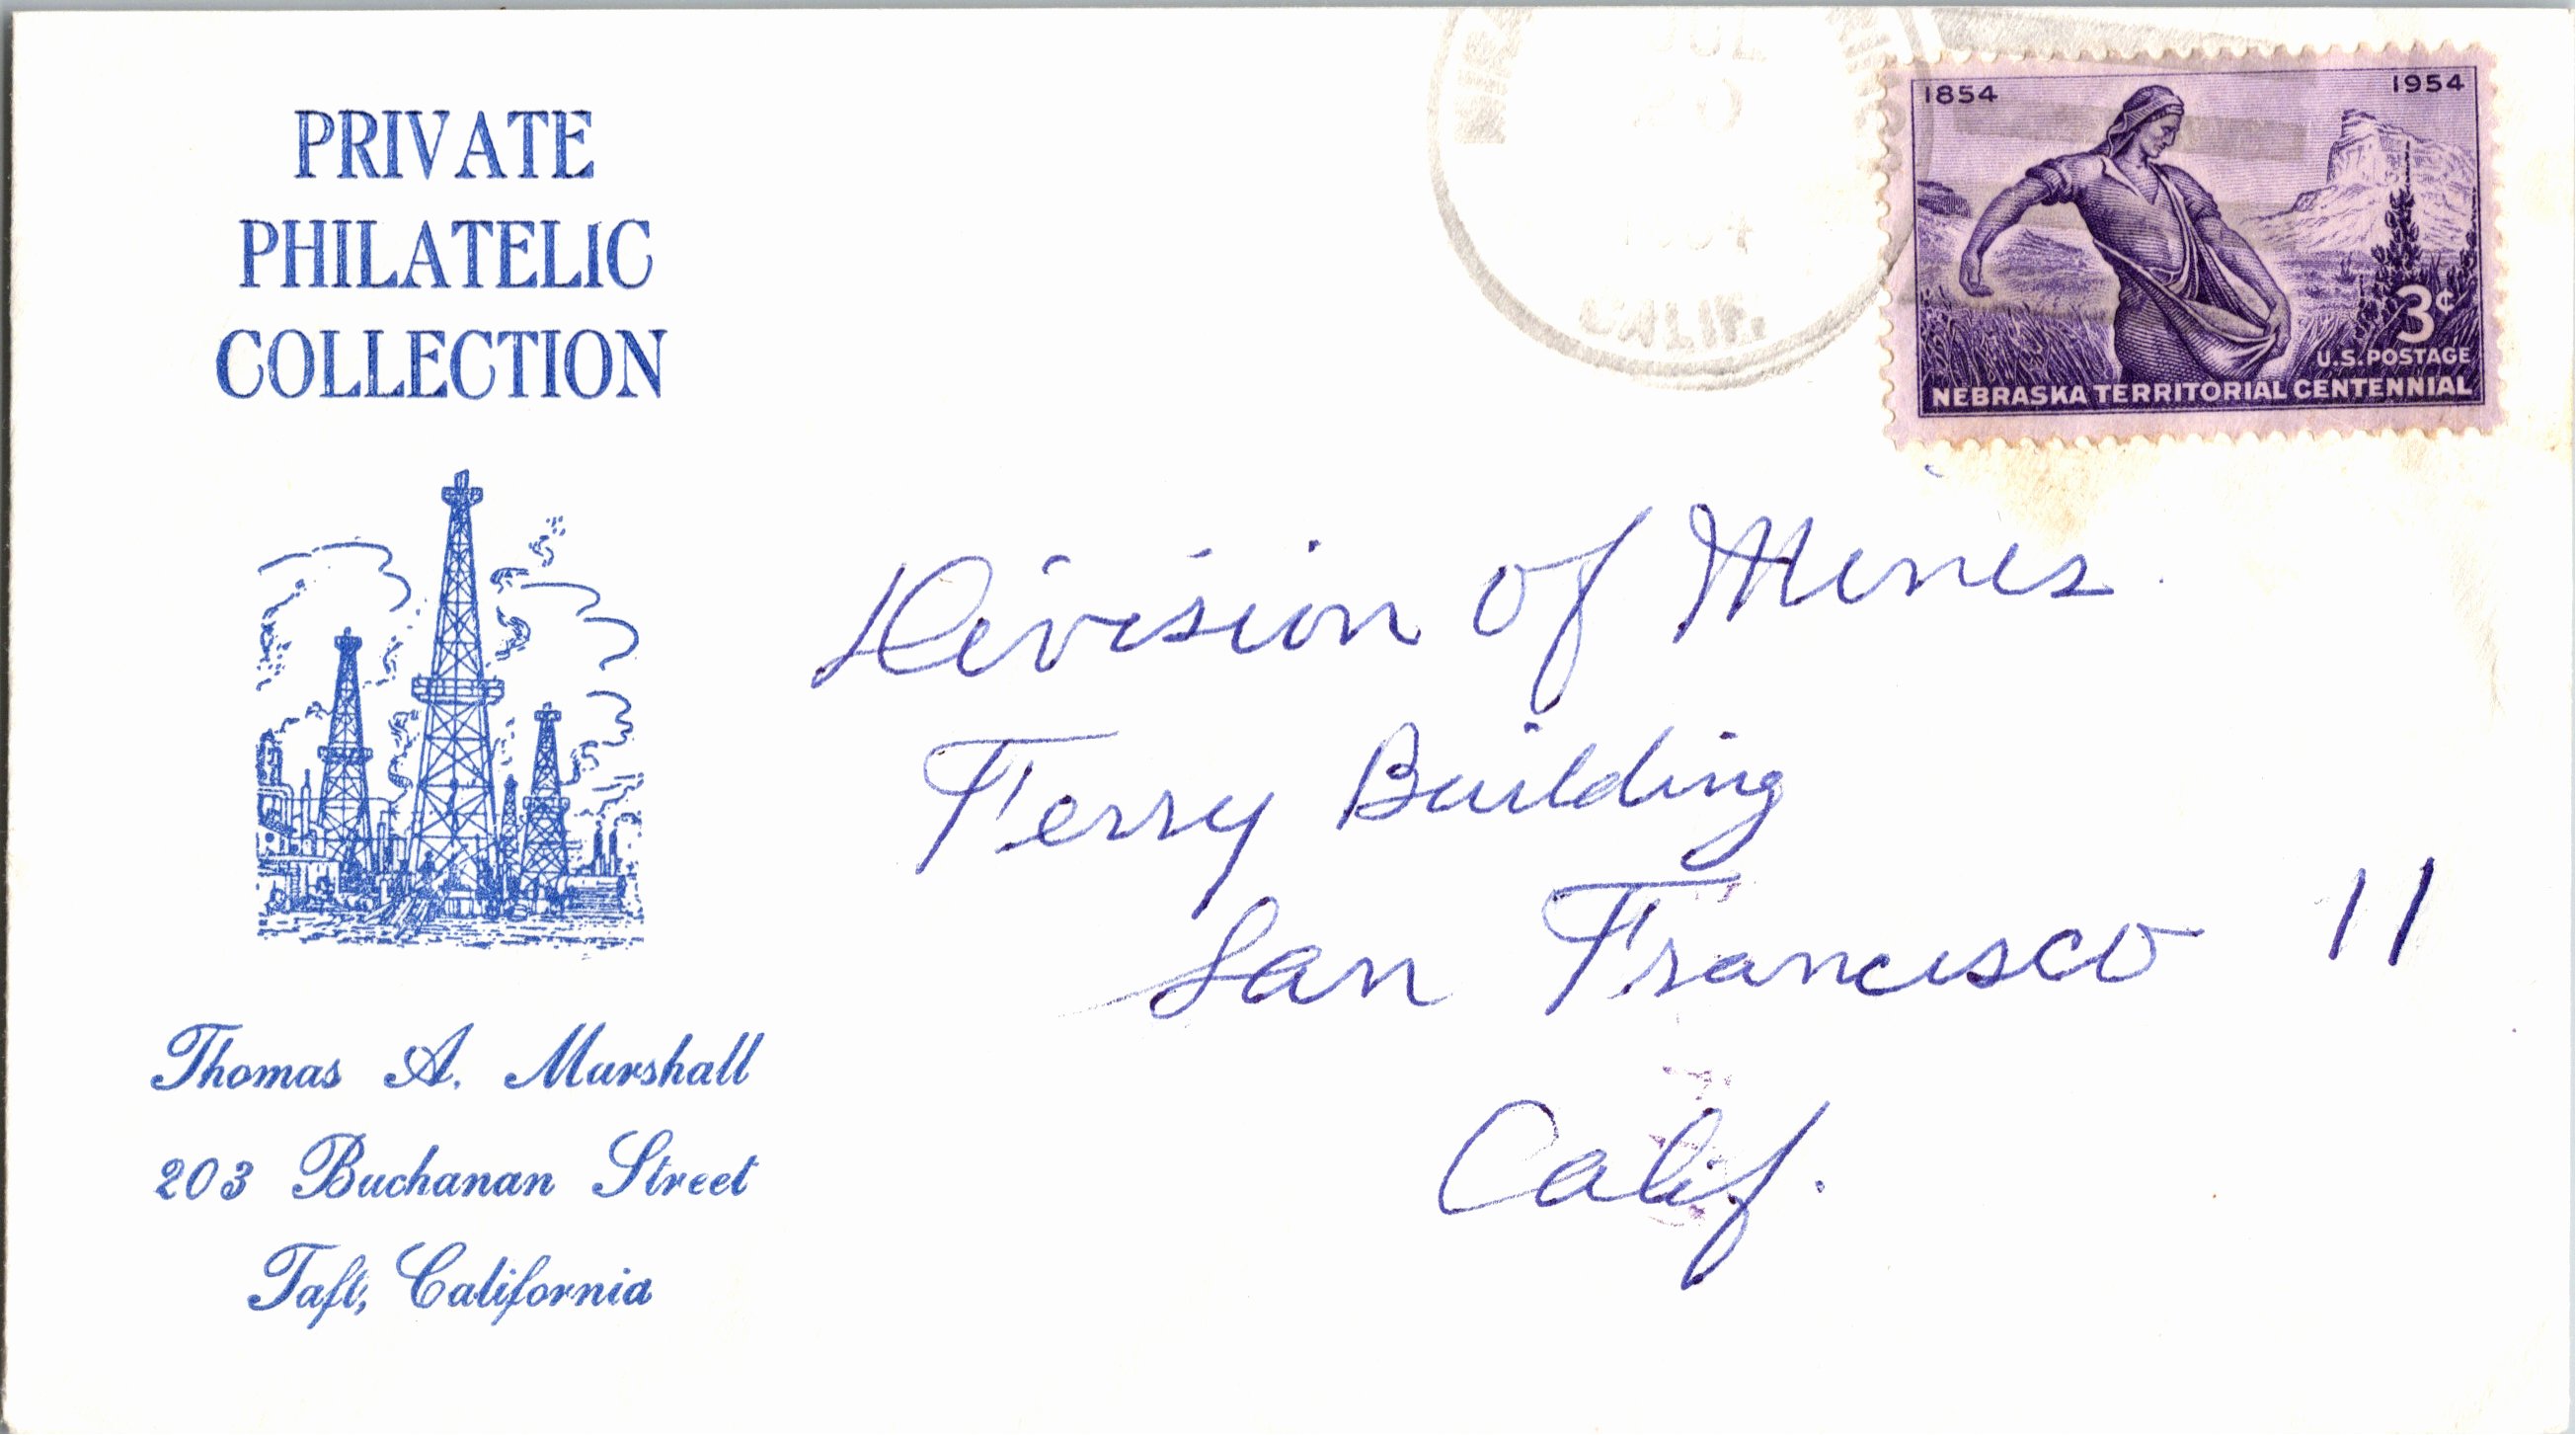 PRIVATE
PHILATELIC
COLLECTION
Thomas A. Marshall
203 Buchanan Street
Taft, California
JUL
CALIF.
1854
1954
3¢
U.S.POSTAGE
NEBRASKA TERRITORIAL CENTENNIAL
Division of Mines
Ferry Building
San Francisco 11
Calif.